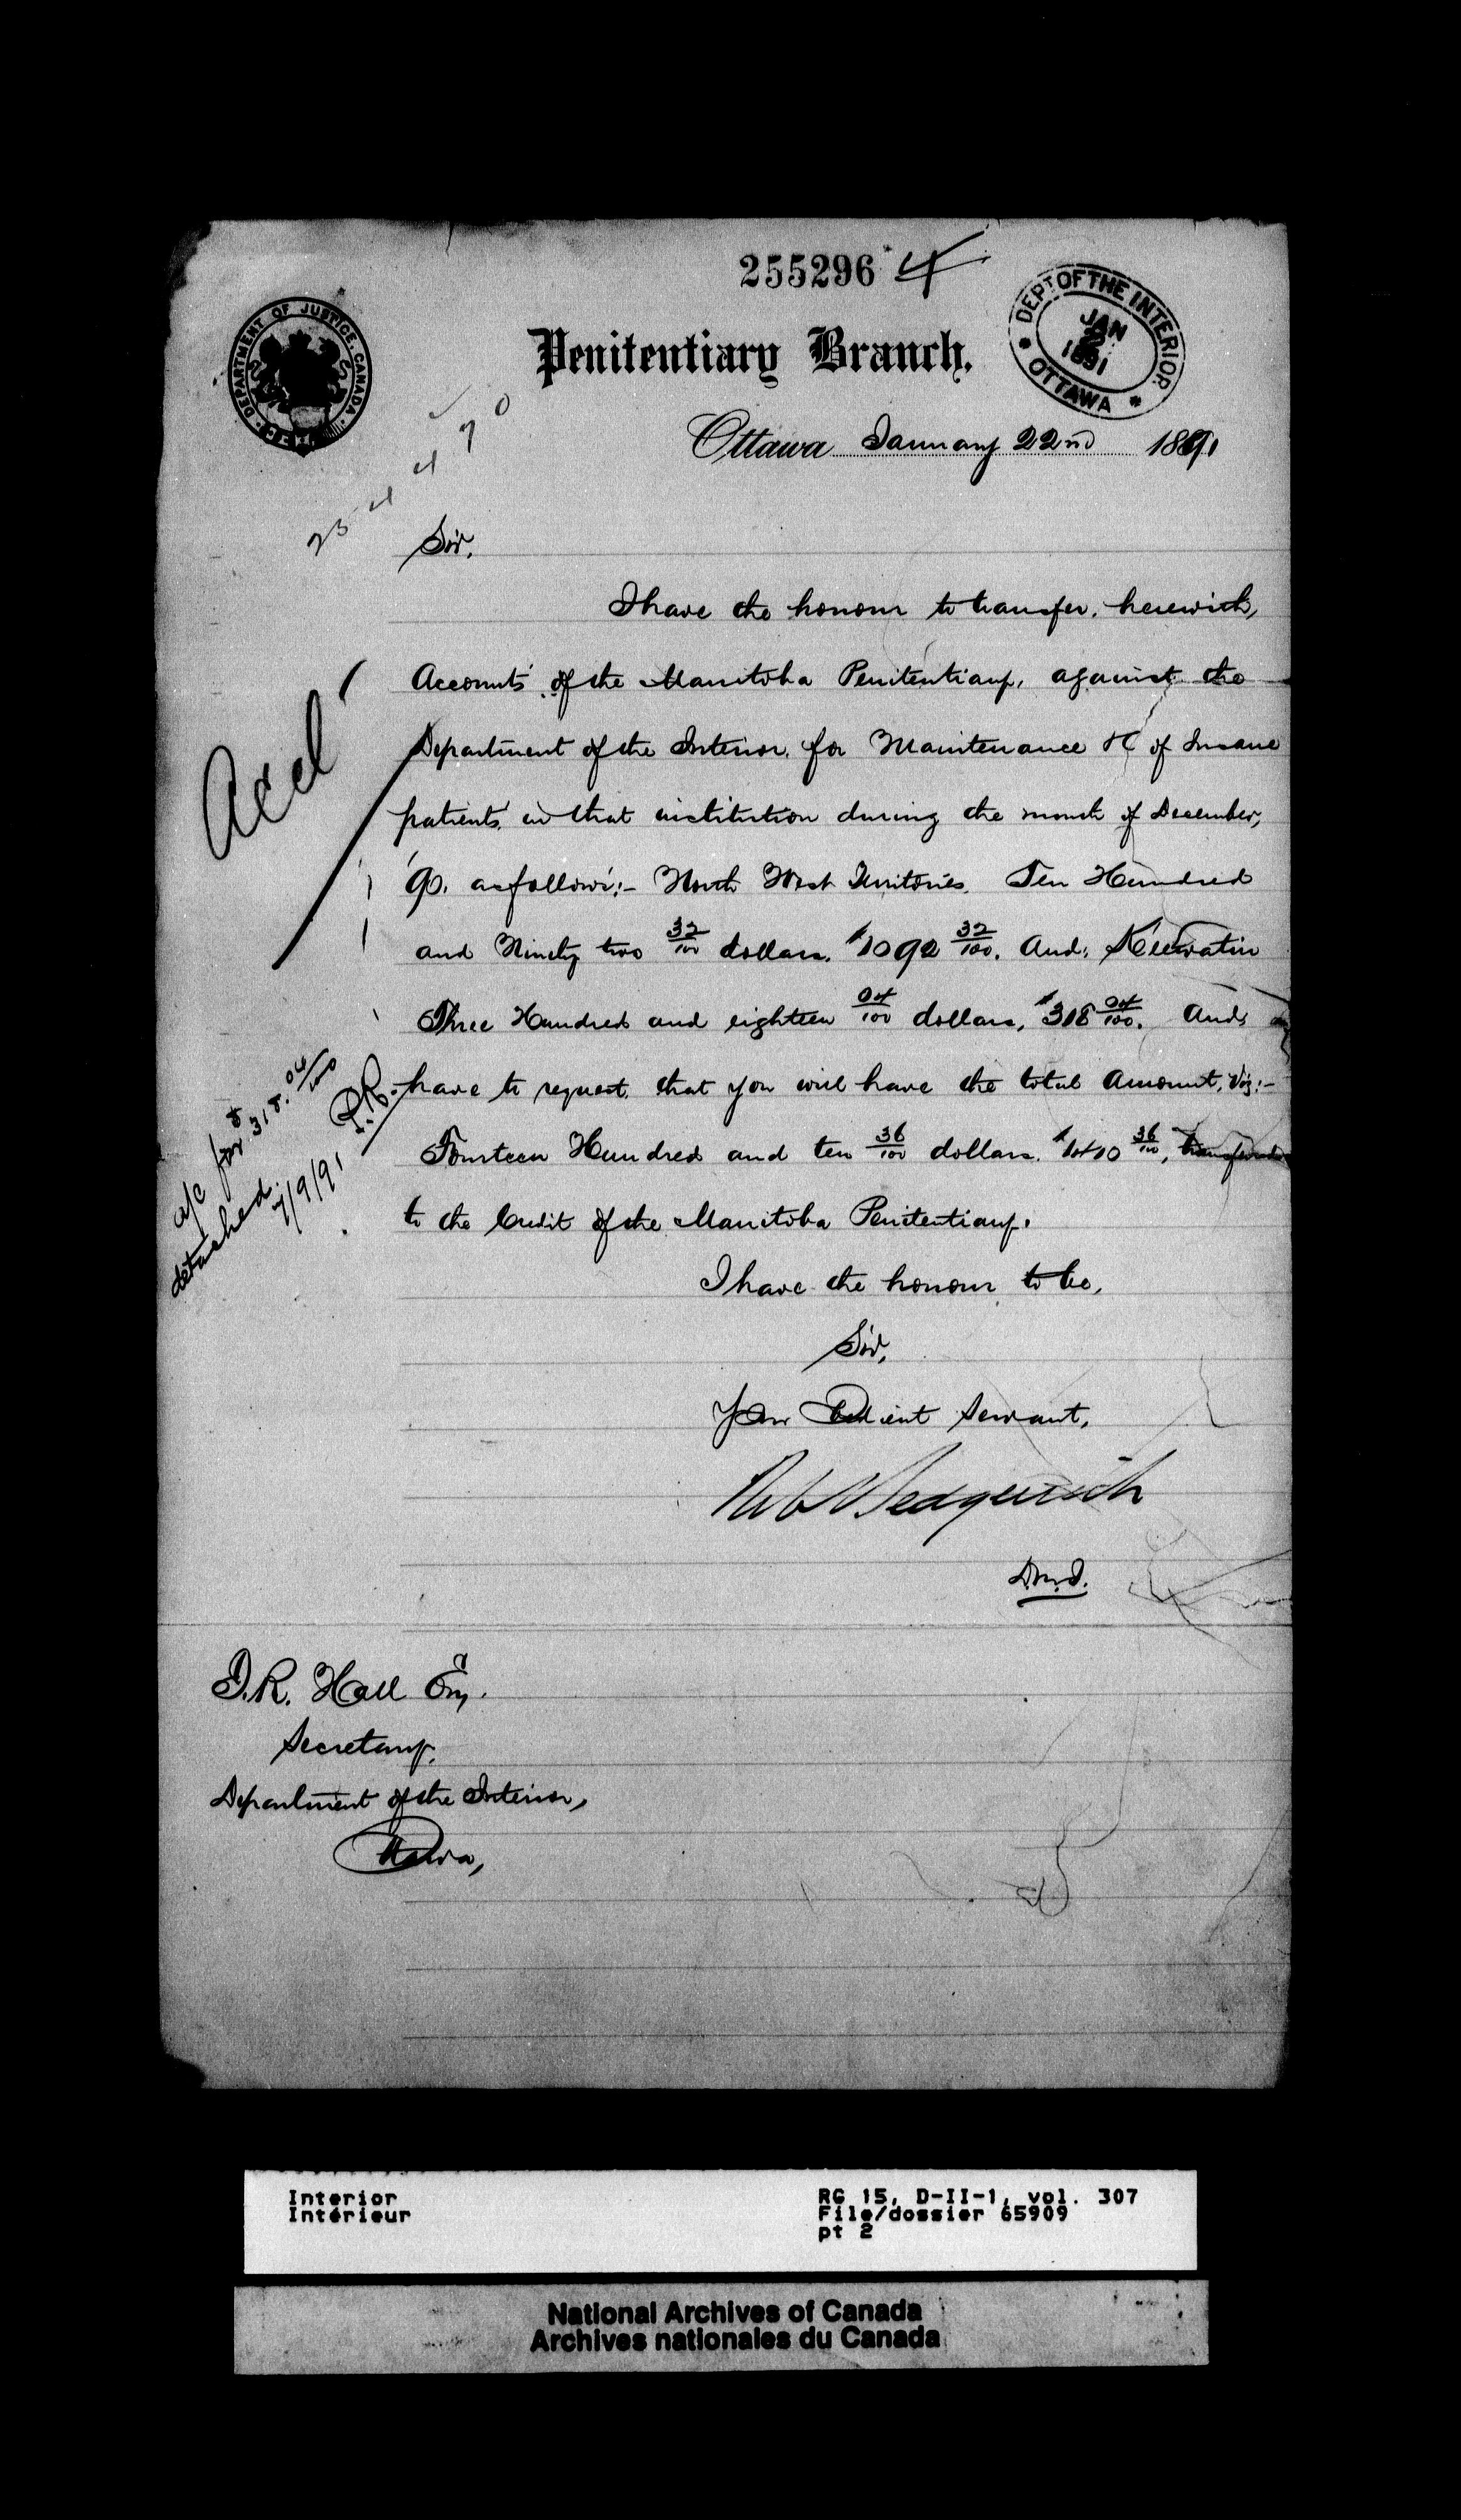 255296 4
DEPARTMENT OF JUSTICE, CANADA
DEPT OF THE INTERIOR
JAN
1891
OTTAWA
Penitentiary Branch.
Ottawa January 22nd 1891
Sir,
I have the honour to transfer, herewith,
Accounts of the Manitoba Penitentiary, against the
Department of the Interior, for Maintenance &c of Insane
patients in that institution during the month of December,
'90, as follows:- North West Territories, Ten Hundred
and Ninety two 32/100 dollars, $1092 32/100. And, Keewatin
Three Hundred and eighteen 04/100 dollars, $318 04/100. And,
have to request that you will have the total Amount, viz:-
Fourteen Hundred and ten 36/100 dollars. $1410 36/100, transferred
to the Credit of the Manitoba Penitentiary.
I have the honour to be,
Sir,
Your Obedient Servant,
Rob Sedgewick
D.M.J.
Accd
a/c for $318.04/100
detached.
7/9/91 P.R.
Secretary,
Department of the Interior,
Ottawa,
Interior
Intérieur
RG 15, D-II-1, vol. 307
File/dossier 65909
pt 2
National Archives of Canada
Archives nationales du Canada